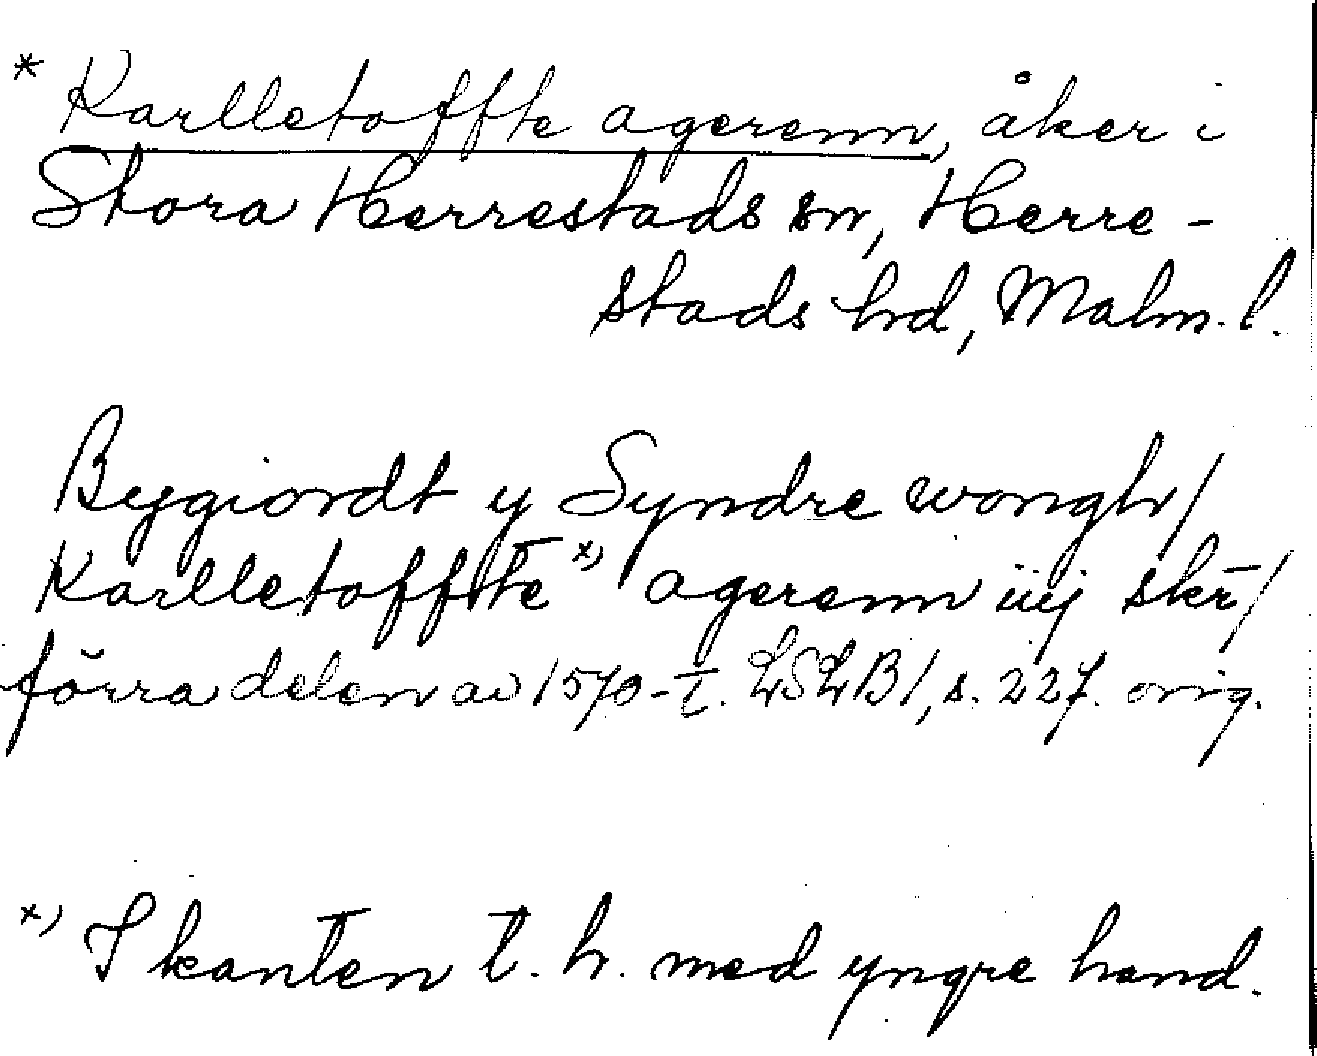 * Karlletoffte agerenn, åker i
Stora Herrestads sn, Herre-
stads hd, Malm. l.
Bygiordt y Syndre wongh/
Karlletoffte x) agerenn iiij skr̄/
förra delen av 1570-t. LSLB1, s. 227. orig.
x) I kanten t. h. med yngre hand.